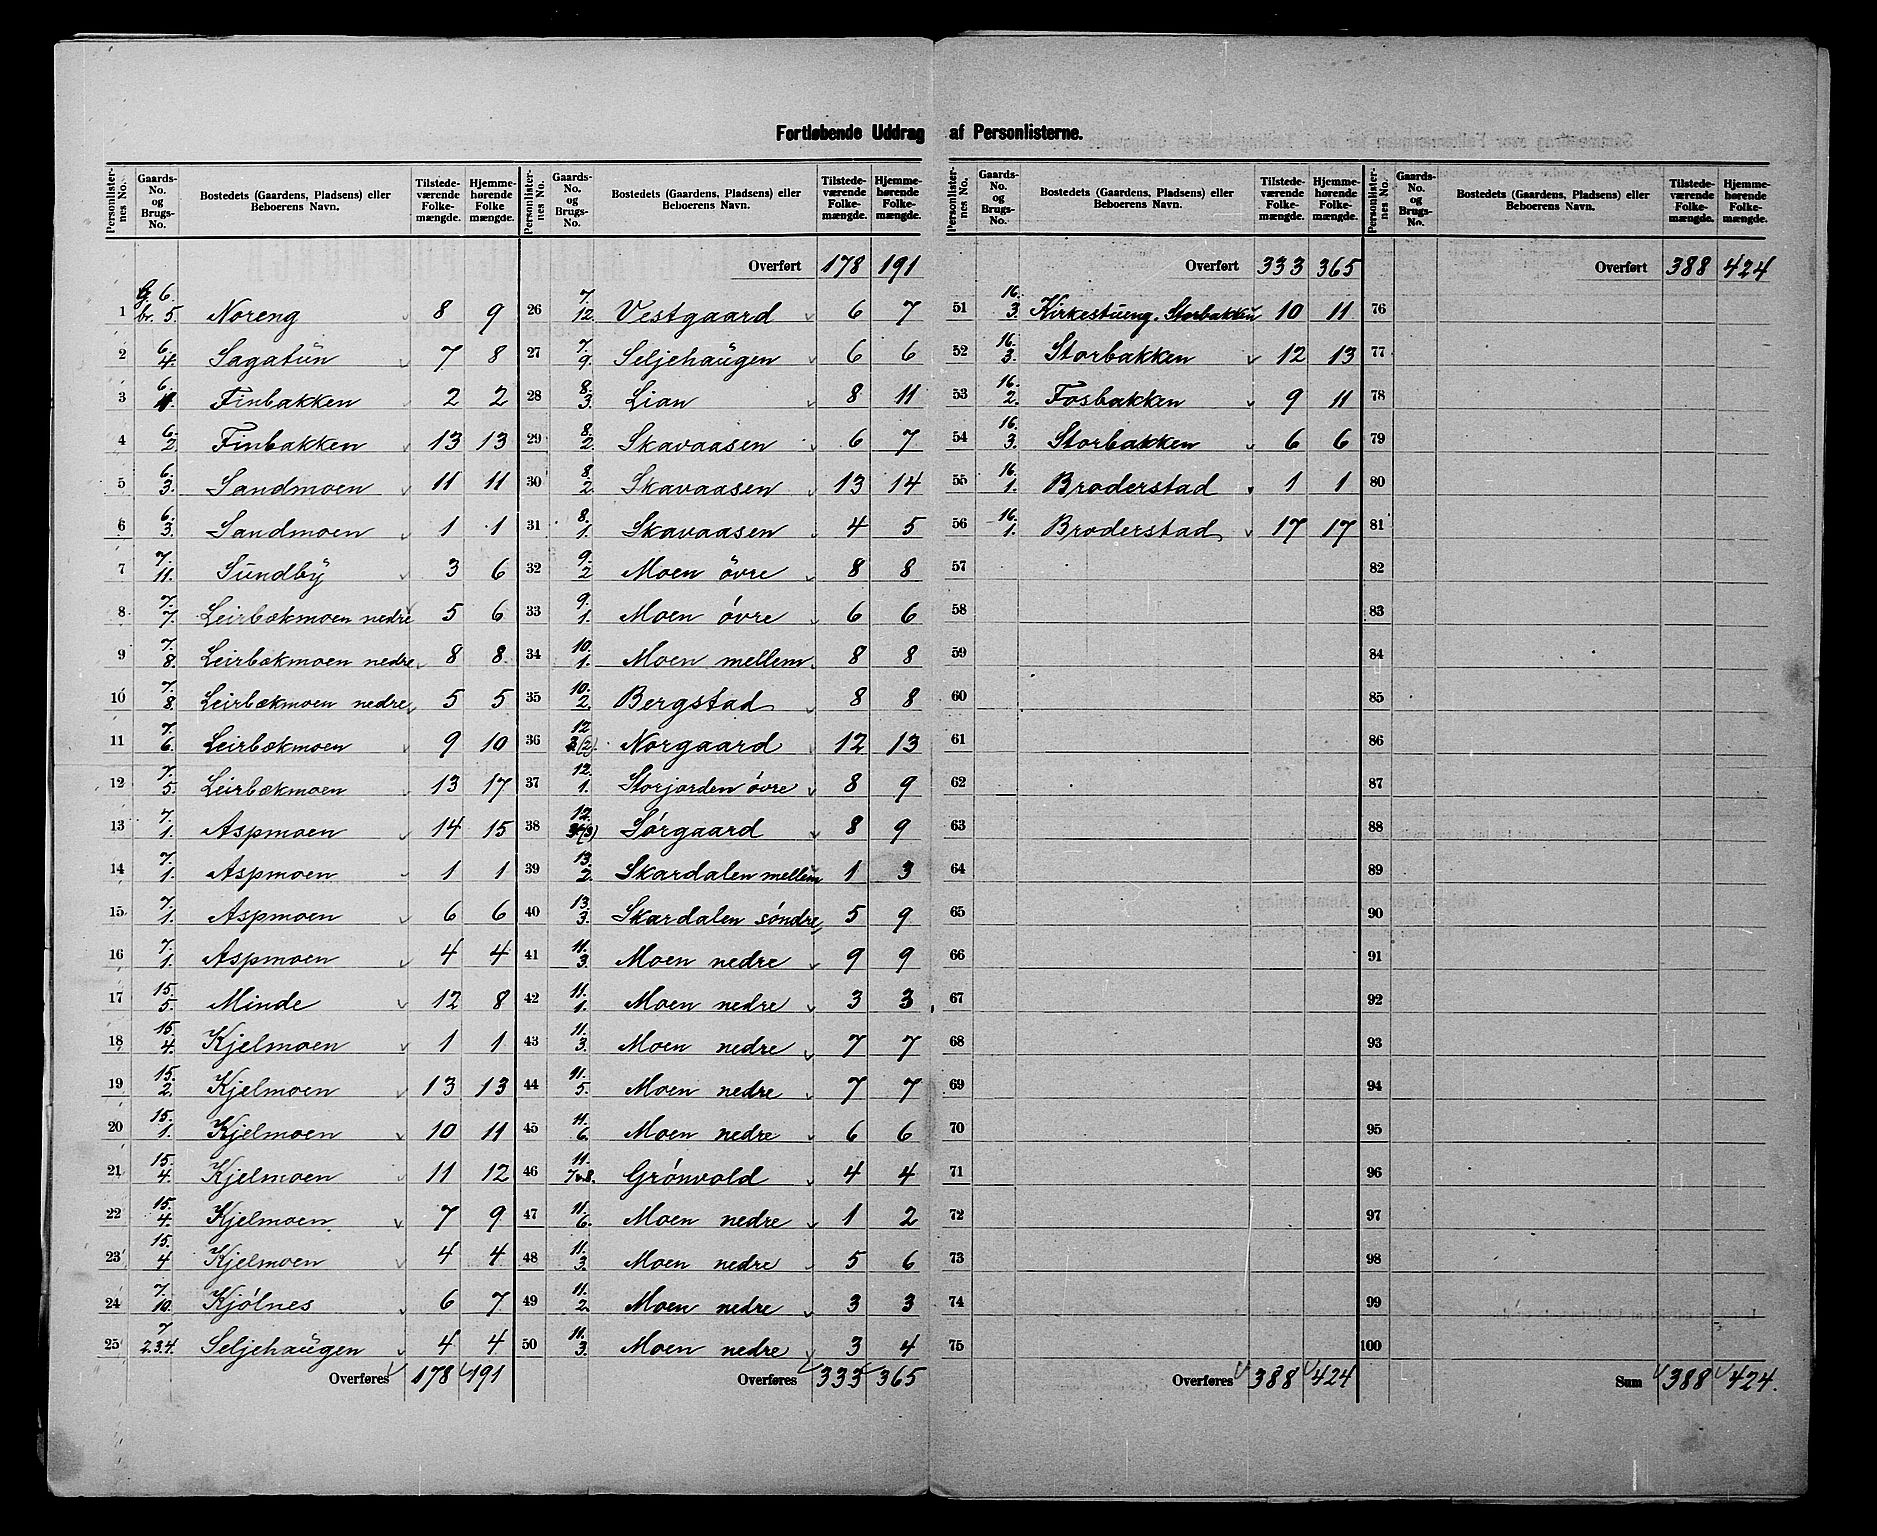 Fortløbende Uddrag af Personlisterne.
Personlister-nes No. | Gaards-No. og Brugs-No. | Bostedets (Gaardens, Pladsens) eller Beboerens Navn. | Tilstede-værende Folke-mængde. | Hjemme-hørende Folke mængde.
1 | G. 6. br. 5. | Noreng | 8 | 9
2 | 6. 4. | Sagatun | 7 | 8
3 | 6. 1. | Finbakken | 2 | 2
4 | 6. 2. | Finbakken | 13 | 13
5 | 6. 3. | Sandmoen | 11 | 11
6 | 6. 3. | Sandmoen | 1 | 1
7 | 7. 11. | Sundby | 3 | 6
8 | 7. 7. | Leirbækmoen nedre | 5 | 6
9 | 7. 8. | Leirbækmoen nedre | 8 | 8
10 | 7. 8. | Leirbækmoen nedre | 5 | 5
11 | 7. 6. | Leirbækmoen | 9 | 10
12 | 7. 5. | Leirbækmoen | 13 | 17
13 | 7. 1. | Aspmoen | 14 | 15
14 | 7. 1. | Aspmoen | 1 | 1
15 | 7. 1. | Aspmoen | 6 | 6
16 | 7. 1. | Aspmoen | 4 | 4
17 | 15. 5. | Minde | 12 | 8
18 | 15. 4. | Kjelmoen | 1 | 1
19 | 15. 2. | Kjelmoen | 13 | 13
20 | 15. 1. | Kjelmoen | 10 | 11
21 | 15. 4. | Kjelmoen | 11 | 12
22 | 15. 4. | Kjelmoen | 7 | 9
23 | 15. 4 | Kjelmoen | 4 | 4
24 | 7. 10. | Kjólnes | 6 | 7
25 | 7 2.3.4. | Seljehaugen | 4 | 4
Overføres 178 191
Personlister-nes No. | Gaards-No. og Brugs-No. | Bostedets (Gaardens, Pladsens) eller Beboerens Navn. | Tilstede-værende Folke-mængde. | Hjemme-hørende Folke-mængde.
Overført 178 191
26 | 7. 12. | Vestgaard | 6 | 7
27 | 7. 9. | Seljehaugen | 6 | 6
28 | 8. 3. | Lian | 8 | 11
29 | 8. 2. | Skavaasen | 6 | 7
30 | 8. 2. | Skavaasen | 13 | 14
31 | 8. 1. | Skavaasen | 4 | 5
32 | 9. 2 | Moen óvre | 8 | 8
33 | 9. 1. | Moen óvre | 6 | 6
34 | 10. 1. | Moen mellem | 8 | 8
35 | 10. 2. | Bergstad | 8 | 8
36 | 12. (2). | Norgaard | 12 | 13
37 | 12. 1. | Storjorden óvre | 8 | 9
38 | 12. (3) | Sórgaard | 8 | 9
39 | 13. 2. | Skardalen mellem | 1 | 3
40 | 13. 3. | Skardalen sóndre | 5 | 9
41 | 11. 3. | Moen nedre | 9 | 9
42 | 11. 1. | Moen nedre | 3 | 3
43 | 11. 3. | Moen nedre | 7 | 7
44 | 11. 5. | Moen nedre | 7 | 7
45 | 11. 6. | Moen nedre | 6 | 6
46 | 11. 7 8. | Grónvold | 4 | 4
47 | 11. 6. | Moen nedre | 1 | 2
48 | 11. 3. | Moen nedre | 5 | 6
49 | 11. 2. | Moen nedre | 3 | 3
50 | 11. 3. | Moen nedre | 3 | 4
Overføres 333 365
Personlister-nes No. | Gaards-No. og Brugs-No. | Bostedets (Gaardens, Pladsens) eller Beboerens Navn. | Tilstede-værende Folke-mængde. | Hjemme-hørende Folke-mængde.
Overført 333 365
51 | 16. 3. | Storbakken | 10 | 11
52 | 16. 3. | Storbakken | 12 | 13
53 | 16. 2. | Fosbakken | 9 | 11
54 | 16. 3. | Storbakken | 6 | 6
55 | 16. 1. | Broderstad | 1 | 1
56 | 16. 1. | Broderstad | 17 | 17
57
58
59
60
61
62
63
64
65
66
67
68
69
70
71
72
73
74
75
Overføres 388 424
Personlister-nes No. | Gaards-No. og Brugs-No. | Bostedets (Gaardens, Pladsens) eller Beboerens Navn. | Tilstede-værende Folke-mængde. | Hjemme-hørende Folke-mængde.
Overført 388 424
76
77
78
79
80
81
82
83
84
85
86
87
88
89
90
91
92
93
94
95
96
97
98
99
100
Sum 388 424.